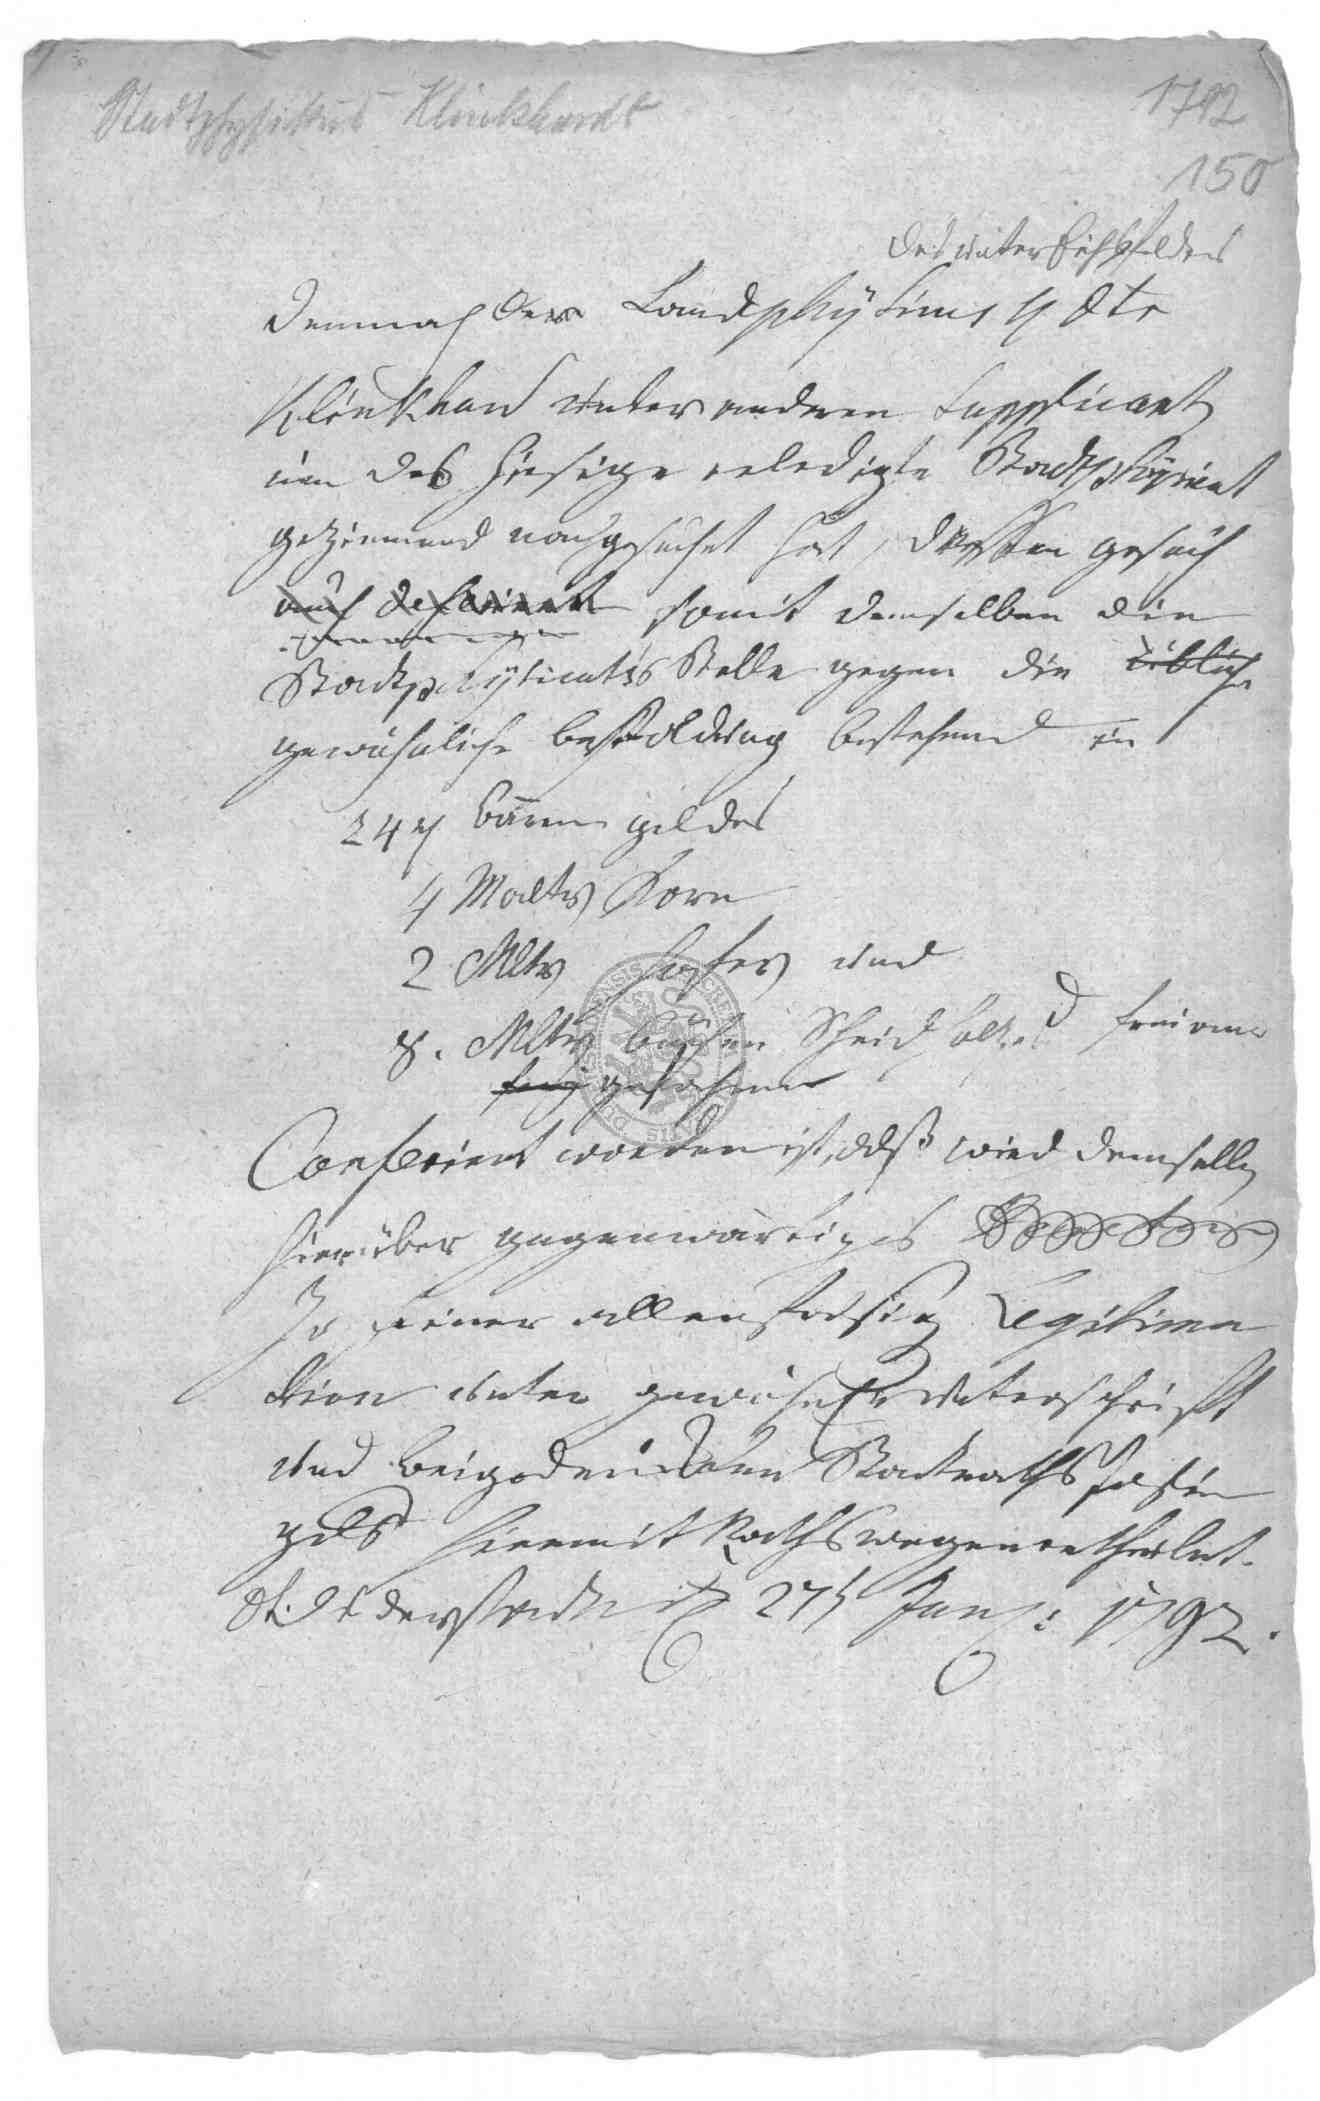 Stadtphysikus Klinkhardt
1792
150
des unter Eichsfeldes
Demnach der Landphysicus H Dr
Klinkhard unter anderen Supplicant
um das hiesige erledigte Stadtphysicat
geziemend nachgesuchet hat, dessen gesuch
auch deferiret somit demselben die
Stadtphysicats Stelle gegen die übliche
gewöhnliche besoldung bestehend in
24 baaren geldes
4 Malter Korn
2 Mltr Hafer und
8. Mltr buchen Scheid holz frei
Conferirt worden ist, als wird demselben
hierüber gegenwärtiges
zu seiner allenfalsigen Legitima
tion unter gewöhnl. unterschrift
und beigedrucktem Stadtraths
hiermit Rathswegen ertheilet.
Duderstadt d 27t Jan: 1792.